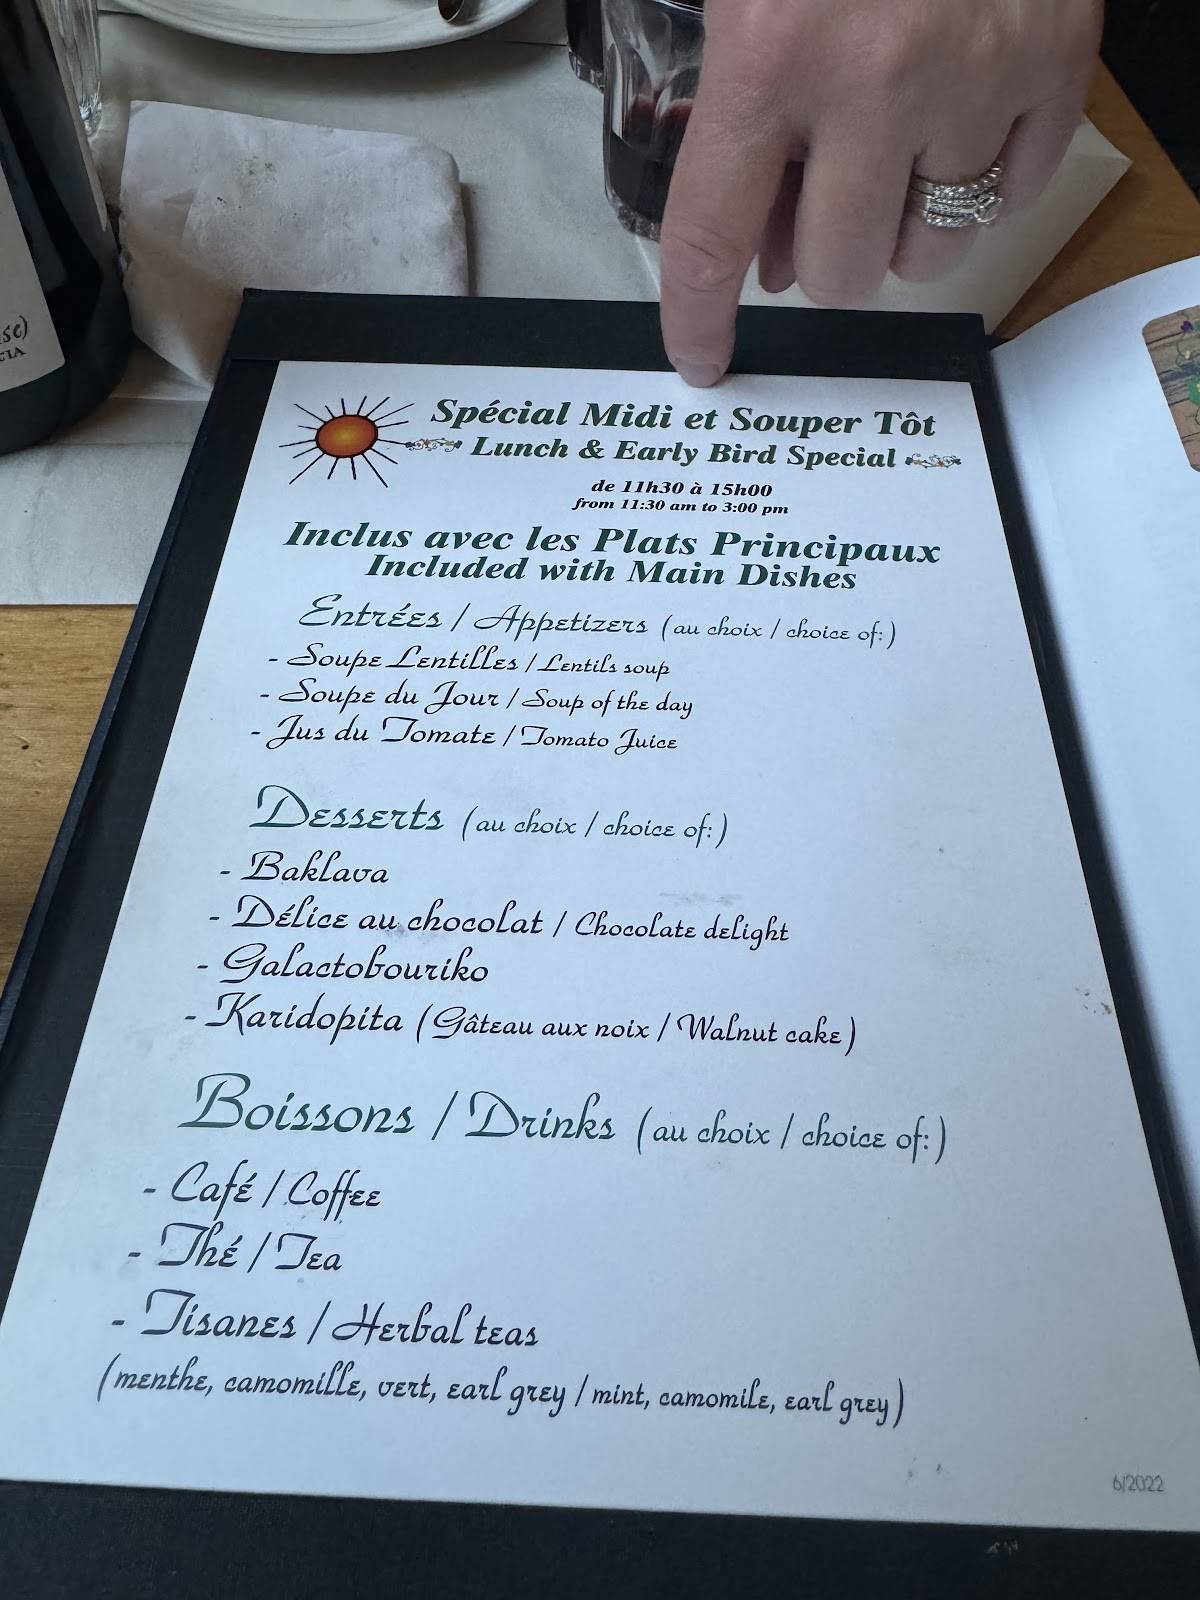 se)
CIA
Spécial Midi et Souper Tôt
Lunch & Early Bird Special
de 11h30 à 15h00
from 11:30 am to 3:00 pm
Inclus avec les Plats Principaux
Included with Main Dishes
Entrées / Appetizers (au choix / choice of:)
- Soupe Lentilles / Lentils soup
- Soupe du Jour / Soup of the day
- Jus du Tomate / Tomato Juice
Desserts (au choix / choice of:)
- Baklava
- Délice au chocolat / Chocolate delight
- Galactobouriko
- Karidopita (Gâteau aux noix / Walnut cake)
Boissons / Drinks (au choix / choice of:)
- Café / Coffee
- Thé / Tea
- Tisanes / Herbal teas
(menthe, camomille, vert, earl grey / mint, camomile, earl grey)
6/2022